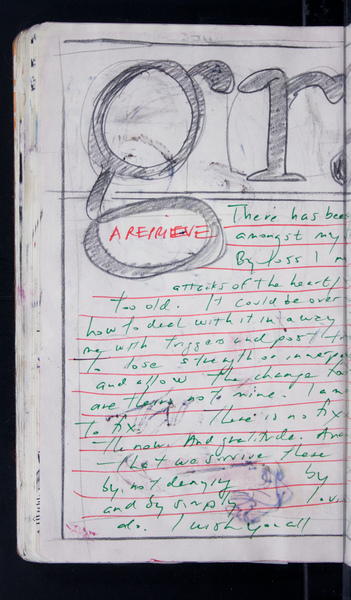 gr
A REPRIEVE
There has bee
amongst my
By loss I m
attacks of the heart/
too old. It could be over
how to deal with it in a way
me with triggers and post tr
to lose strength or
and allow the change to
are theirs not mine. I am
to fix. There is no fix
the now. And gratitude. And
that we survive these
by not denying by
and by simply
do. I wish you all